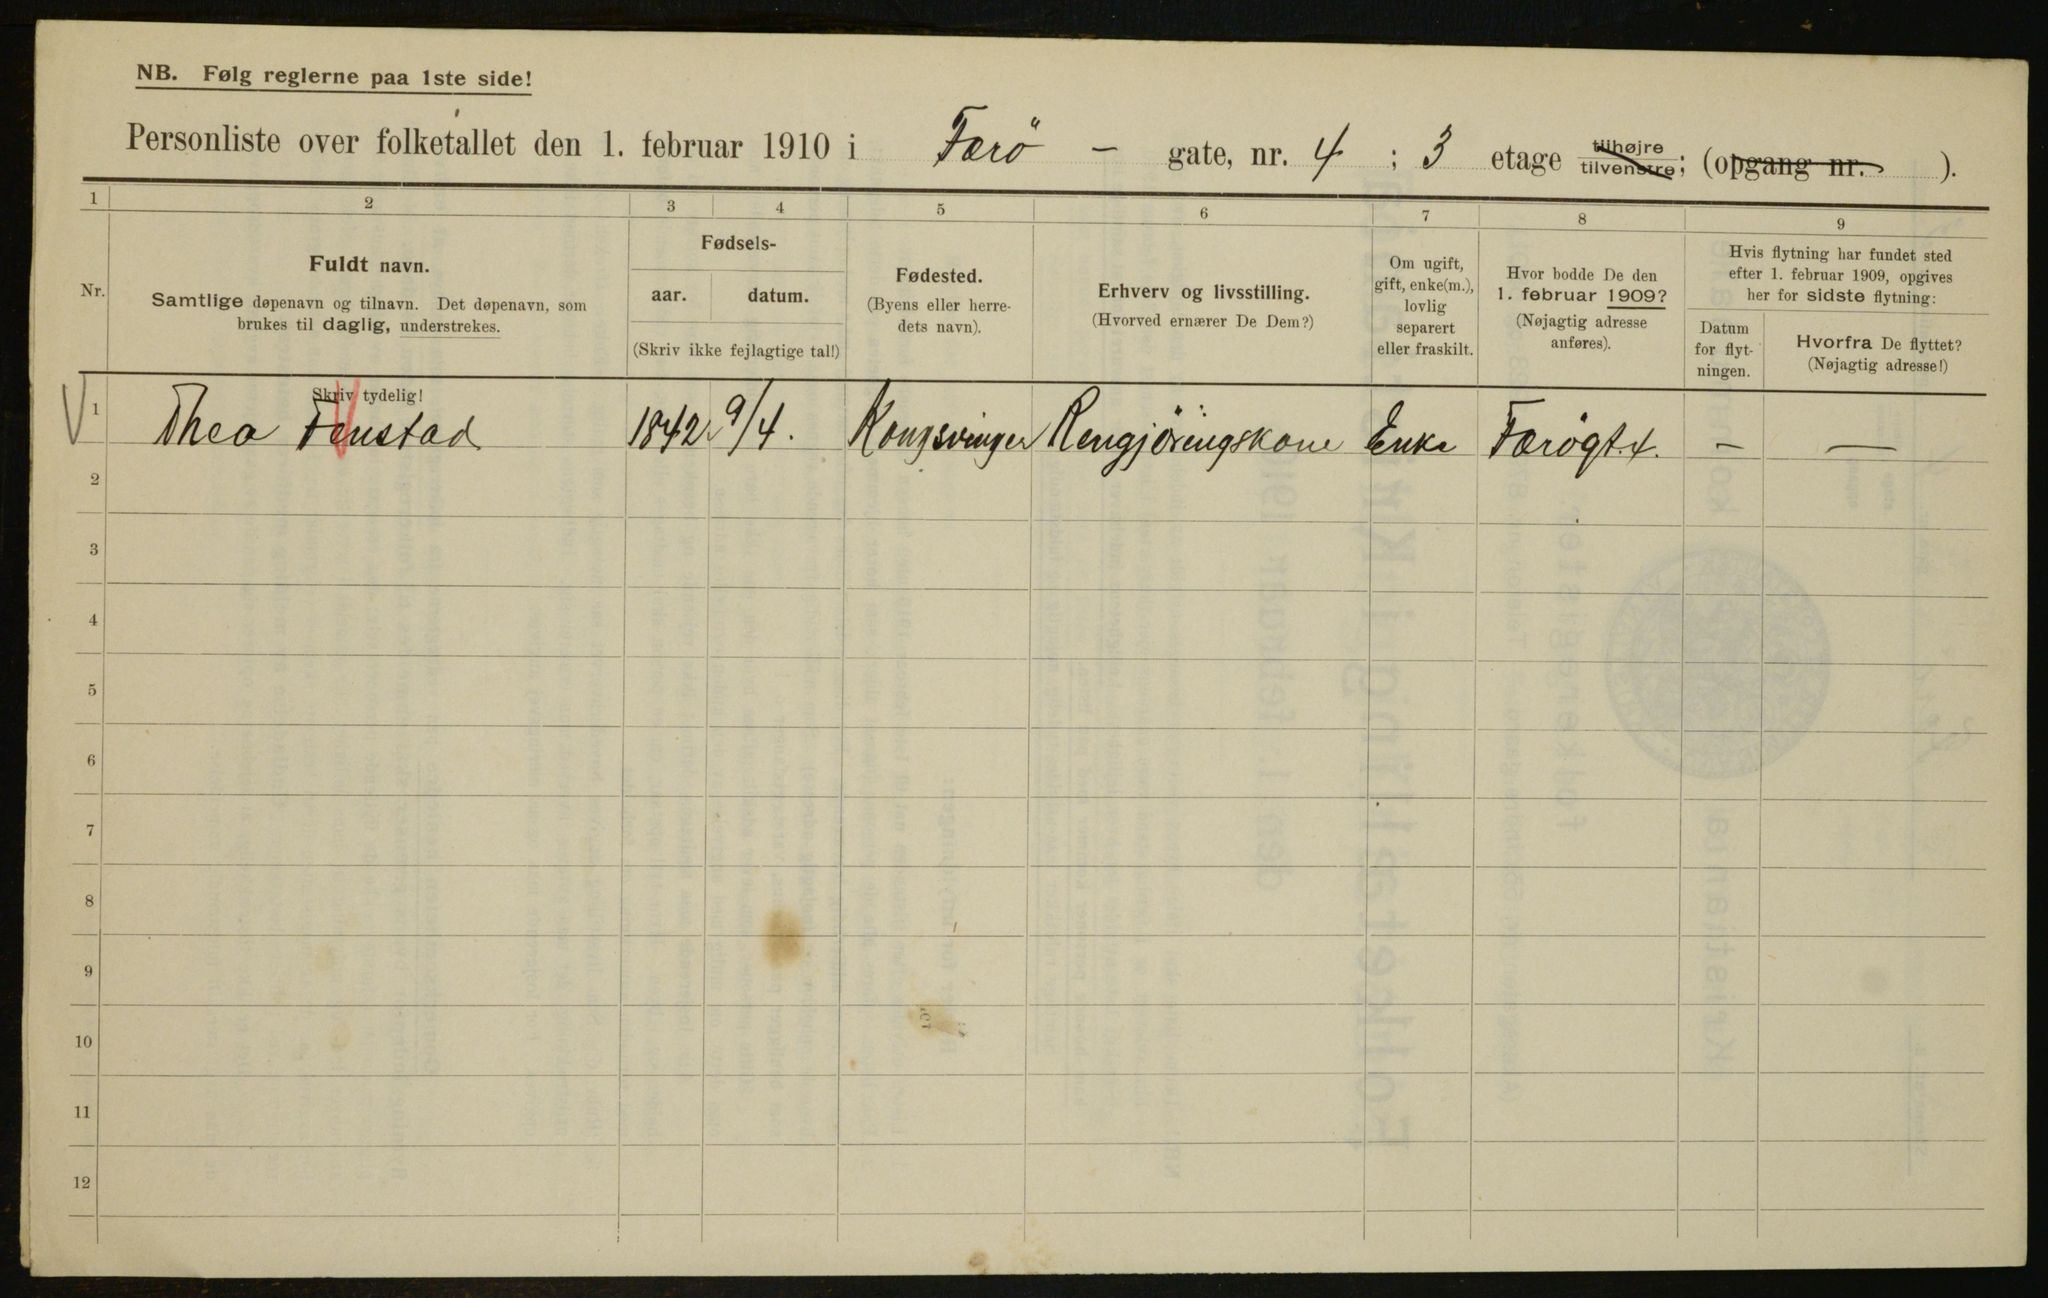 NB. Følg reglerne paa 1ste side!
Personliste over folketallet den 1. februar 1910 i Færö - gate, nr. 4 ; 3 etage tilhøjre tilvenstre; (opgang nr. ).
1 2 3 4 5 6 7 8 9
Nr.
Fuldt navn.
Samtlige døpenavn og tilnavn. Det døpenavn, som
brukes til daglig, understrekes.
Skriv tydelig!
Fødsels-
aar. datum.
(Skriv ikke fejlagtige tal!)
Fødested.
(Byens eller herre-
dets navn).
Erhverv og livsstilling.
(Hvorved ernærer De Dem?)
Om ugift,
gift, enke(m.),
lovlig
separert
eller fraskilt.
Hvor bodde De den
1. februar 1909?
(Nøjagtig adresse
anføres).
Hvis flytning har fundet sted
efter 1. februar 1909, opgives
her for sidste flytning:
Datum
for flyt-
ningen.
Hvorfra De flyttet?
(Nøjagtig adresse!)
1 Thea Fenstad 1842 9/4. Kongsvinger Rengjöringskone Enke Færögt. 4. - -
2
3
4
5
6
7
8
9
10
11
12